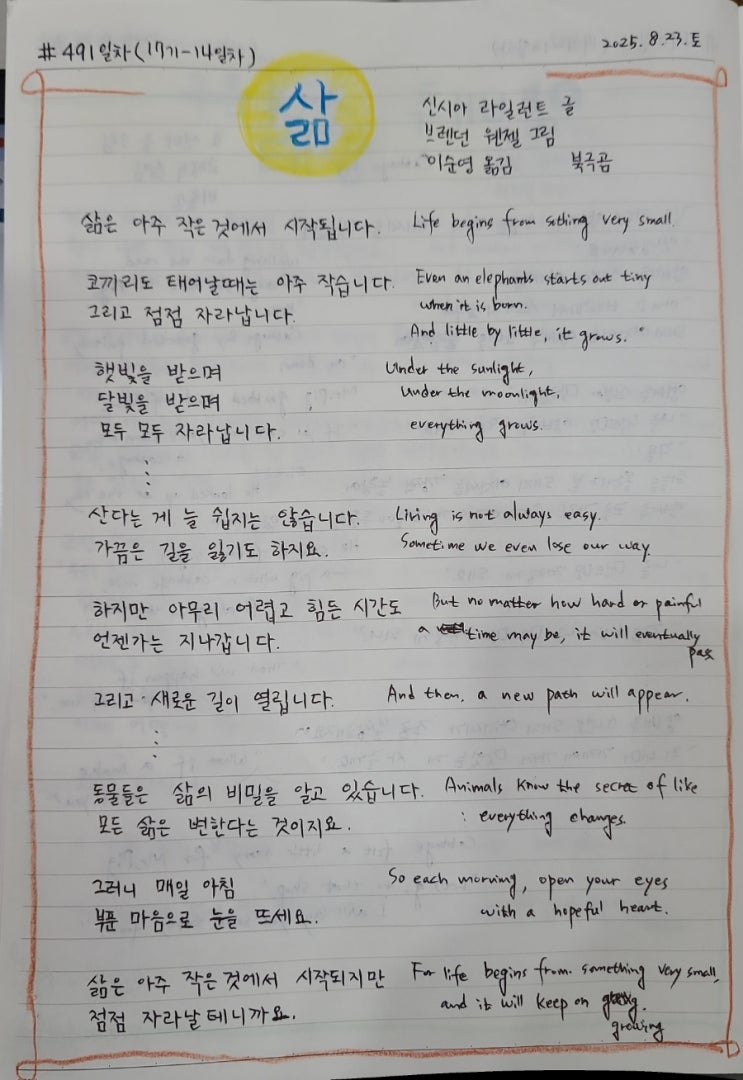 #491일차(17기-14일차)
2025.8.23.토
삶
신시아 라일런트 글
브렌던 웬젤 그림
이순영 옮김 북극곰
삶은 아주 작은 것에서 시작됩니다.
Life begins from sothing very small.
코끼리도 태어날때는 아주 작습니다.
그리고 점점 자라납니다.
Even an elephants starts out tiny
when it is born.
And little by little, it grows.
햇빛을 받으며
달빛을 받으며
모두 모두 자라납니다.
Under the sunlight,
Under the moonlight,
everything grows.
산다는 게 늘 쉽지는 않습니다.
가끔은 길을 잃기도 하지요.
Living is not always easy.
Sometime we even lose our way.
하지만 아무리 어렵고 힘든 시간도
언젠가는 지나갑니다.
But no matter how hard or painful
a time may be, it will eventually
pass
그리고 새로운 길이 열립니다.
And then, a new path will appear.
동물들은 삶의 비밀을 알고 있습니다.
모든 삶은 변한다는 것이지요.
Animals know the secret of like
: everything changes.
그러니 매일 아침
부푼 마음으로 눈을 뜨세요.
So each morning, open your eyes
with a hopeful heart.
삶은 아주 작은 것에서 시작되지만
점점 자라날 테니까요.
For life begins from something very small,
and it will keep on
growing